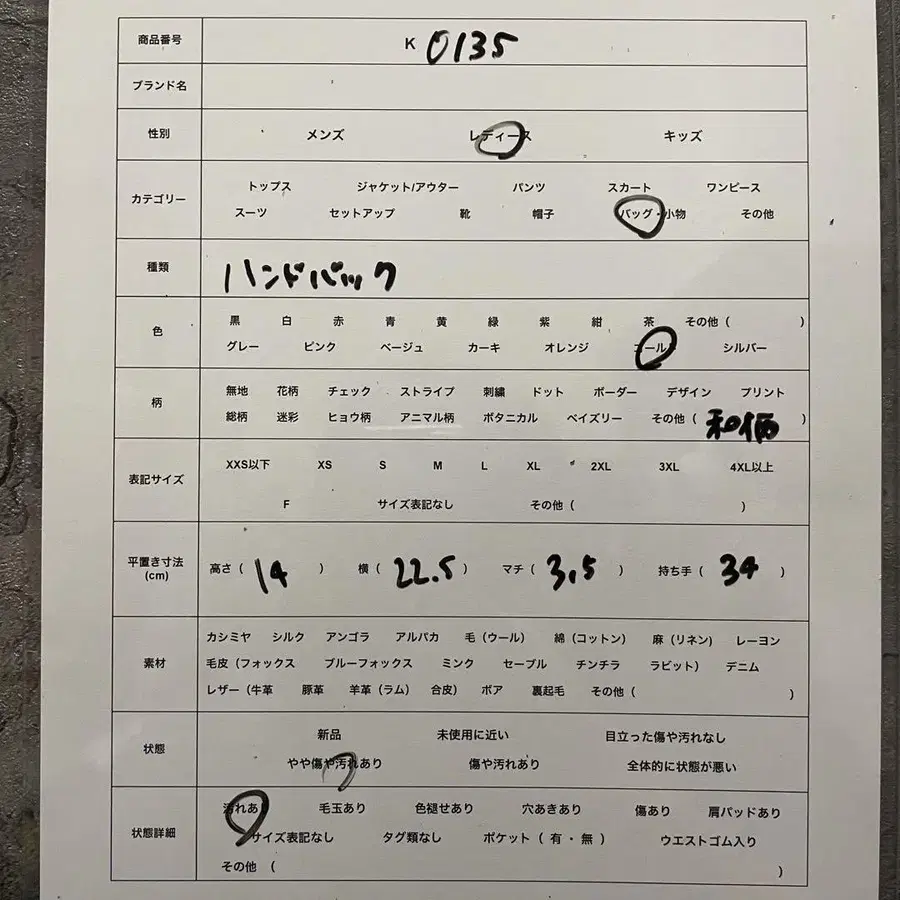 商品番号 K 0135
ブランド名
性別 メンズ レディース キッズ
カテゴリー
トップス ジャケット/アウター パンツ スカート ワンピース
スーツ セットアップ 靴 帽子 バッグ・小物 その他
種類 ハンドバック
色
黒 白 赤 青 黄 緑 紫 紺 茶 その他 ( )
グレー ピンク ベージュ カーキ オレンジ ゴールド シルバー
柄
無地 花柄 チェック ストライプ 刺繍 ドット ボーダー デザイン プリント
総柄 迷彩 ヒョウ柄 アニマル柄 ボタニカル ペイズリー その他 ( 和柄 )
表記サイズ
XXS以下 XS S M L XL 2XL 3XL 4XL以上
F サイズ表記なし その他 ( )
平置き寸法
(cm)
高さ ( 14 ) 横 ( 22.5 ) マチ ( 3.5 ) 持ち手 ( 34 )
素材
カシミヤ シルク アンゴラ アルパカ 毛 (ウール) 綿 (コットン) 麻 (リネン) レーヨン
毛皮 (フォックス ブルーフォックス ミンク セーブル チンチラ ラビット) デニム
レザー (牛革 豚革 羊革 (ラム) 合皮) ボア 裏起毛 その他 ( )
状態
新品 未使用に近い 目立った傷や汚れなし
やや傷や汚れあり 傷や汚れあり 全体的に状態が悪い
状態詳細
汚れあり 毛玉あり 色褪せあり 穴あきあり 傷あり 肩パッドあり
サイズ表記なし タグ類なし ポケット ( 有・無 ) ウエストゴム入り
その他 ( )